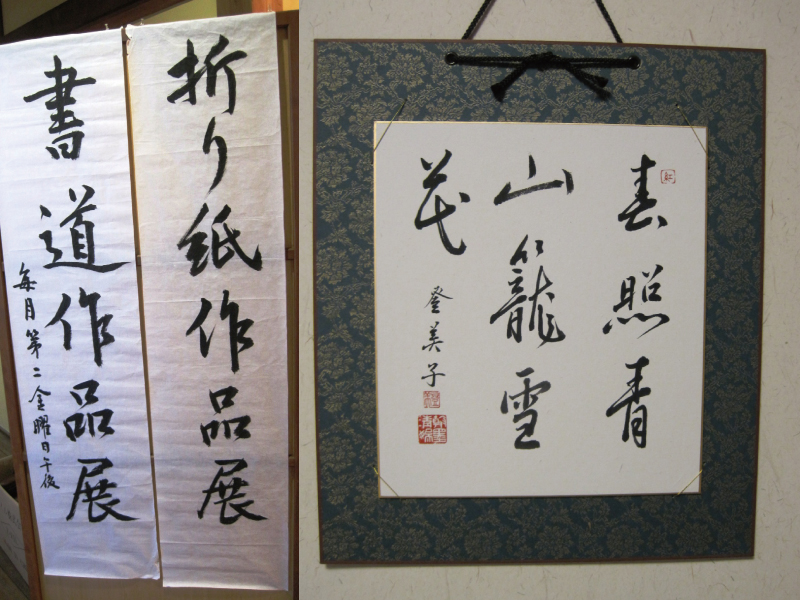 折り紙作品展
書道作品展
毎月第二金曜日午後
春照青
山籠雪
花
登美子